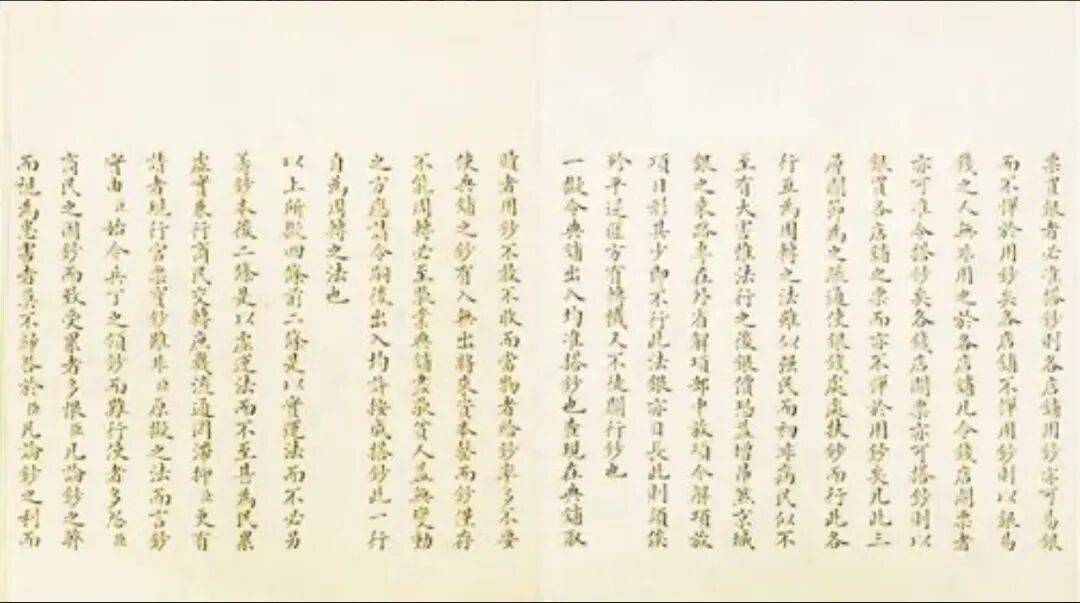 票買銀者必准搭鈔則各店鋪用鈔亦可易銀
而不憚於用鈔矣各店鋪不憚用鈔則以銀易
錢之人無不用之於各店鋪凡令錢店開票者
亦可准令搭鈔矣各錢店開票亦可搭鈔則以
銀買各店鋪之票而亦不憚於用鈔矣凡此三
層關節為之疏通使銀錢處處扶鈔而行此各
行互為周轉之法雖似強民而初非病民似不
至有大害惟法行之後銀價恐益增昂然京城
銀之來路專在外省解項部中放項今解項放
項日形其少即不行此法銀亦日長此則須俟
珍平道
方有轉機又不違關行鈔也
一擬令典鋪出入均准搭鈔也查現在典鋪取
贖者用鈔不敢不收而當物者給鈔率多不要
使典鋪之鈔有入無出將來資本罄而鈔僅存
不能周轉必至歇業典鋪盡歇貧人益無變動
之方應請令嗣後出入均許按成搭鈔此一行
自為周轉之法也
以上所擬四條前二條是以實運法而不必另
籌鈔本後二條是以虛運法而不至甚為民累
虛實兼行商民交轉庶幾流通罔滯抑臣更有
請者現行官票寶鈔雖非臣原擬之法而言鈔
實由臣始今兵丁之領鈔而難行使者多怨臣
商民之因鈔而致受累者多恨臣凡論鈔之弊
而視為患害者莫不歸咎於臣凡論鈔之利而